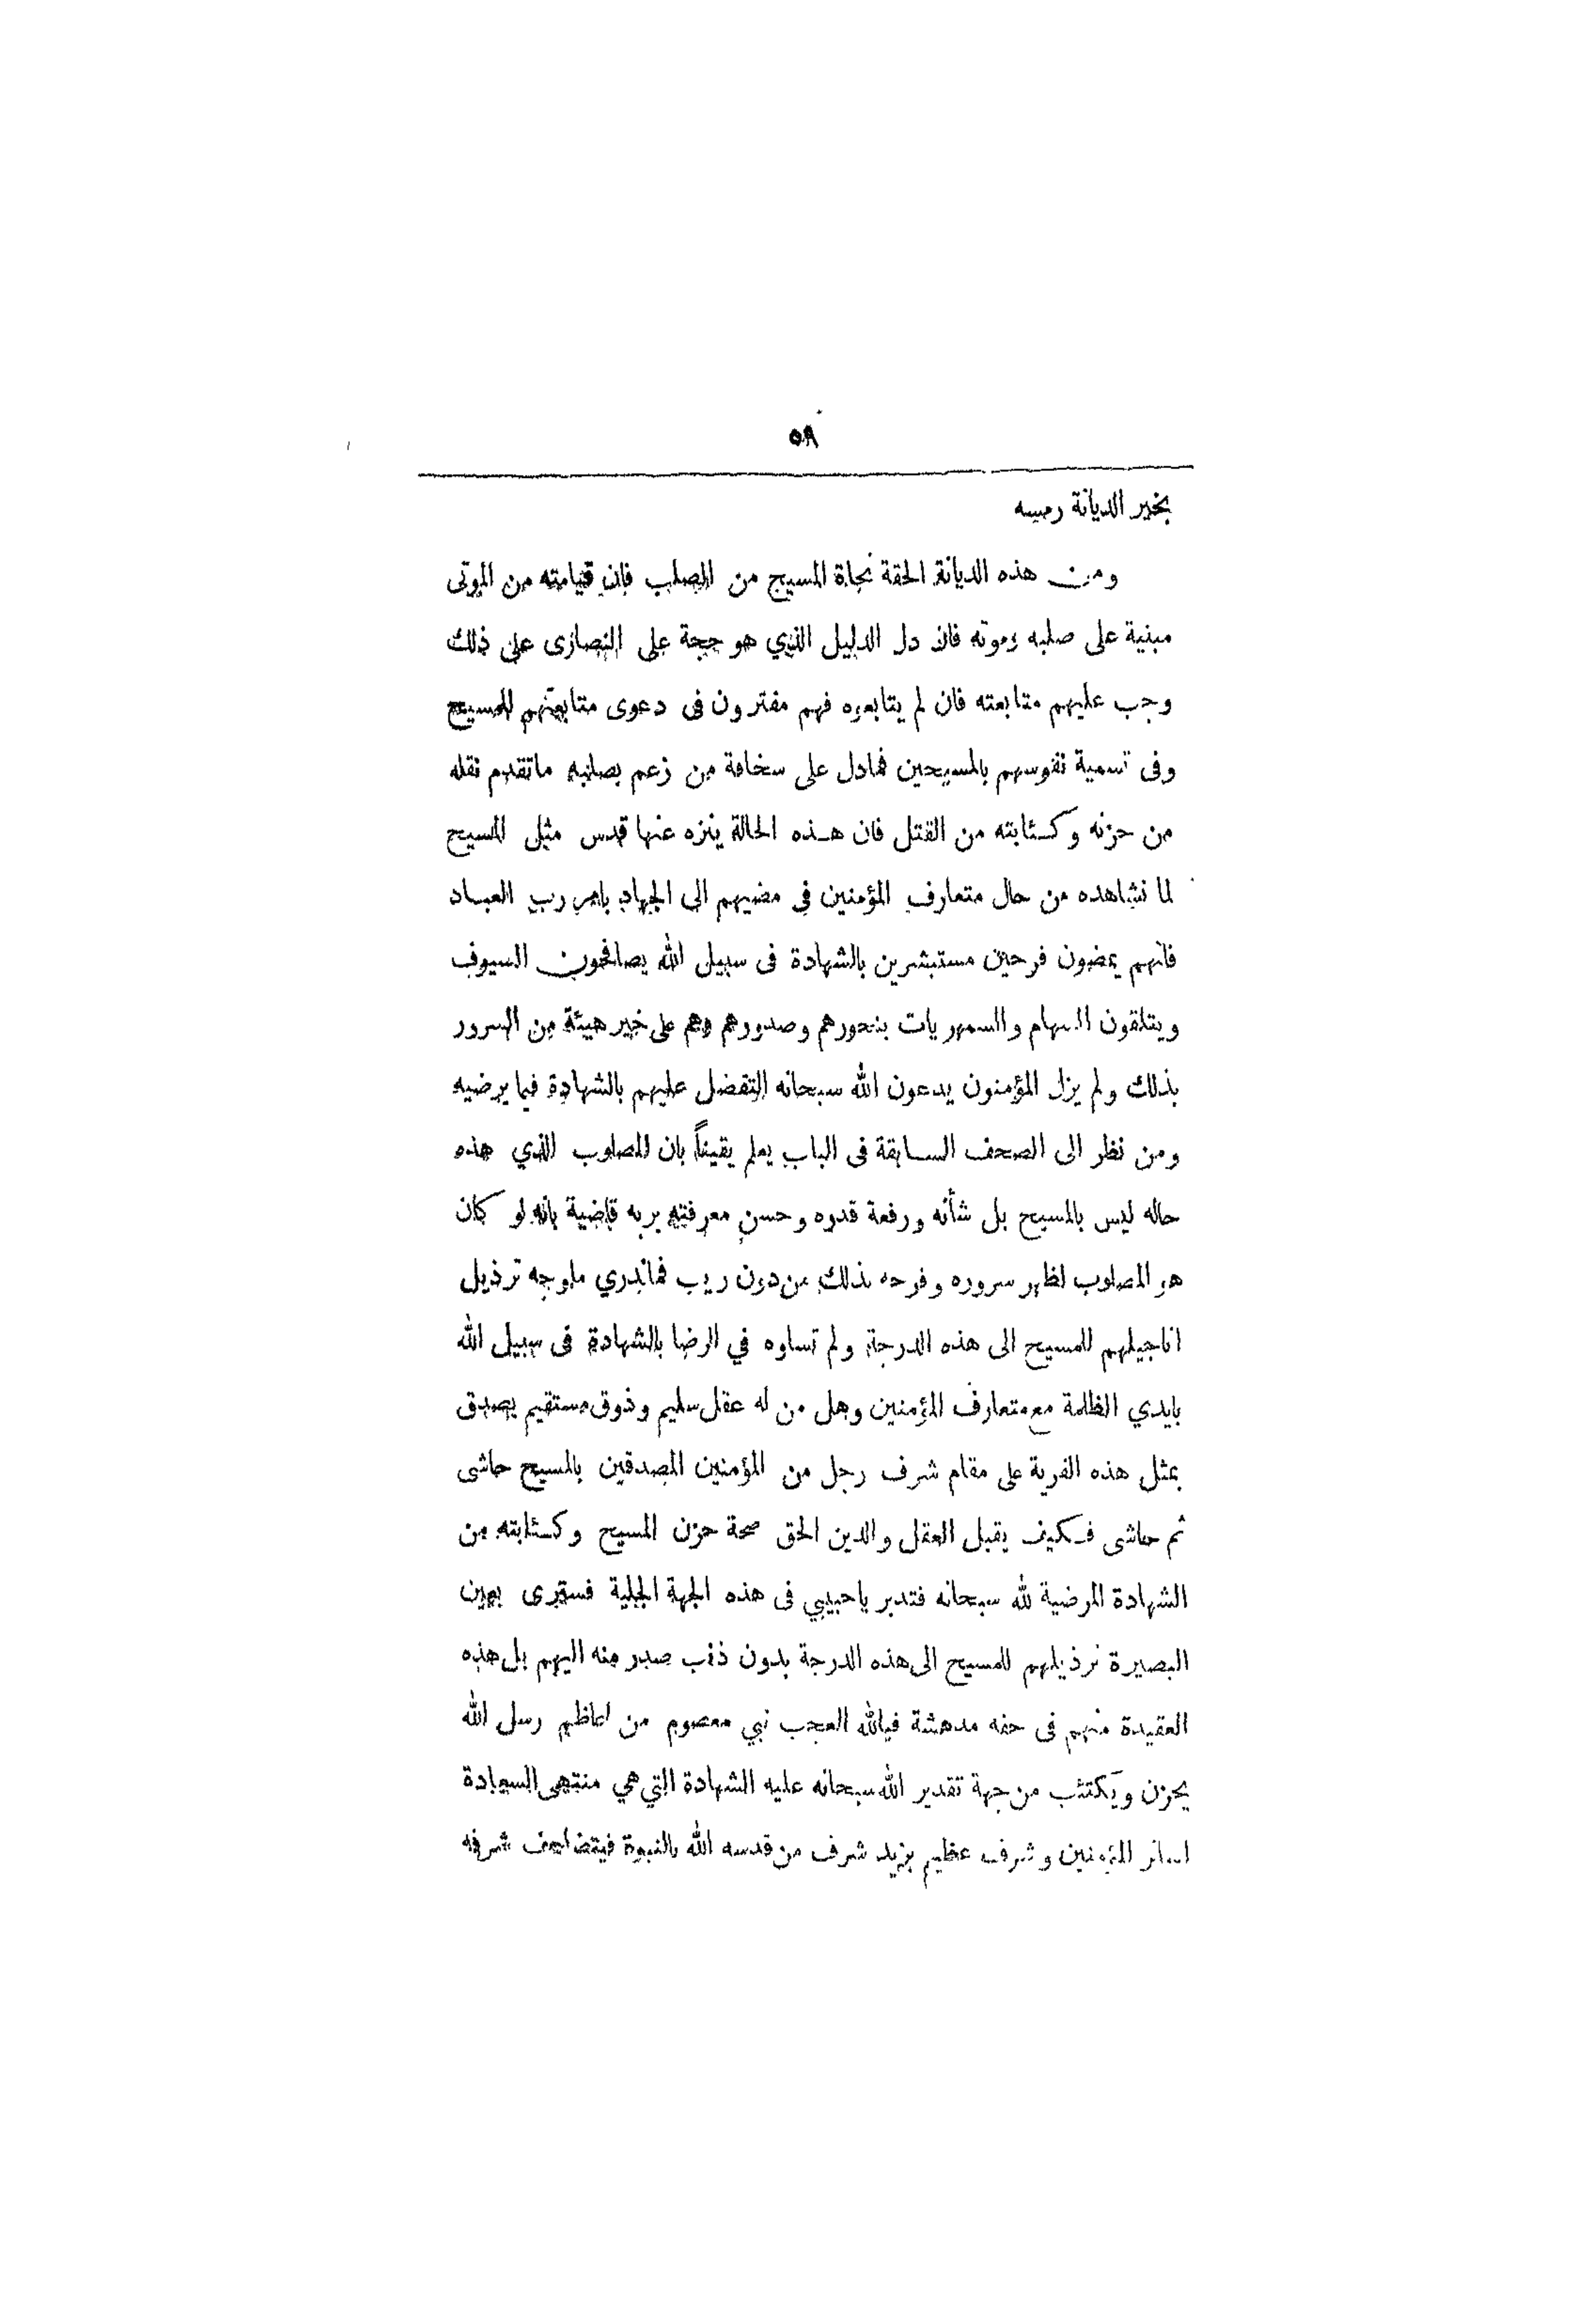 ٥٨
بخير الديانة رمسه
ومن هذه الديانة الحقة نجاة المسيح من الصلب فان قيامته من الموتى
مبنية على صلبه وموته فان دل الدليل الذي هو حجة على النصارى على ذلك
وجب عليهم متابعته فان لم يتابعوه فهم مفترون فى دعوى متابعتهم للمسيح
وفى تسمية نفوسهم بالمسيحين فمادل على سخافة من زعم بصلبه ماتقدم نقله
من حزنه وكئابته من القتل فان هذه الحالة ينزه عنها قدس مثل المسيح
لما نشاهده من حال متعارف المؤمنين في مضيهم الى الجهاد بامر رب العباد
فانهم يمضون فرحين مستبشرين بالشهادة فى سبيل الله يصافحون السيوف
ويتلقون السهام والسمهريات بنحورهم وصدورهم وهم على خير هيئة من السرور
بذلك ولم يزل المؤمنون يدعون الله سبحانه التفضل عليهم بالشهادة فيما يرضيه
ومن نظر الى الصحف السابقة فى الباب يعلم يقيناً بان المصلوب الذي هذه
حاله ليس بالمسيح بل شأنه ورفعة قدره وحسن معرفته بربه قاضية بانه لو كان
هو المصلوب لظهر سروره وفرحه بذلك من دون ريب فماندري ماوجه ترذيل
اناجيلهم للمسيح الى هذه الدرجة ولم تساوه في الرضا بالشهادة فى سبيل الله
بايدي الظلمة مع متعارف المؤمنين وهل من له عقل سليم وذوق مستقيم يصدق
بمثل هذه الفرية على مقام شرف رجل من المؤمنين المصدقين بالمسيح حاشى
ثم حاشى فكيف يقبل العقل والدين الحق صحة حزن المسيح وكئابته من
الشهادة المرضية لله سبحانه فتدبر ياحبيبي فى هذه الجهة الجلية فسترى بعين
البصيرة ترذيلهم للمسيح الى هذه الدرجة بدون ذنب صدر منه اليهم بل هذه
العقيدة منهم فى حقه مدهشة فيالله العجب نبي معصوم من اعاظم رسل الله
يحزن ويكتئب من جهة تقدير الله سبحانه عليه الشهادة التي هي منتهى السعادة
لسائر المؤمنين وشرف عظيم يزيد شرف من قدسه الله بالنبوة فيتضاعف شرفه